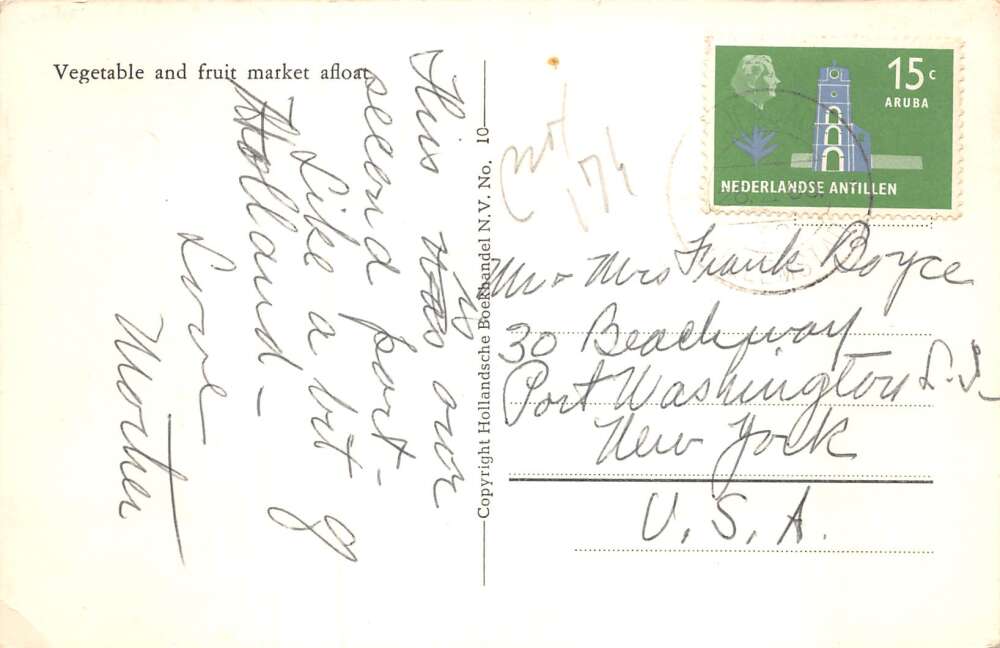 Vegetable and fruit market afloat
This is our
second port-
Like a bit of
Holland-
Love
Mother
Copyright Hollandsche Boekhandel N.V. No. 10
15 c
ARUBA
NEDERLANDSE ANTILLEN
Mr & Mrs Frank Boyce
30 Beachway
Port Washington L.I.
New York
U.S.A.